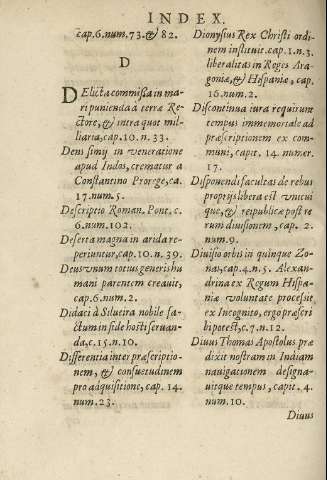 INDEX.
cap.6.num.73.& 82.
D
DElicta commissa in ma-
ri punienda à terræ Re-
ctore, & intra quot mil-
liaria, cap. 10. n. 33.
Dens simij in veneratione
apud Indos, crematur a
Constantino Prorege, ca.
17. num. 5.
Descriptio Roman. Pont. c.
6. num. 102.
Deserta magna in arida re-
periuntur, cap. 10. n. 39.
Deus vnum totius generis hu
mani parentem creauit,
cap. 6. num. 2.
Didaci à Silueira nobile fa-
ctum in fide hosti seruan-
da, c. 15. n. 10.
Differentia inter præscriptio-
nem, & consuetudinem
pro adquisitione, cap. 14.
num. 23.
Dionysius Rex Christi ordi-
nem instituit. cap. 1. n. 3.
liberalitas in Reges Ara-
goniæ, & Hispaniæ, cap.
16. num. 2.
Discontinua iura requirunt
tempus immemoriale ad
præscriptionem ex com-
muni, capit. 14. numer.
17.
Disponendi facultas de rebus
proprys libera est vnicui
que, & reipublicæ post re
rum diuisionem, cap. 2.
num. 9.
Diuisio orbis in quinque Zo-
nas, cap. 4. n. 5. Alexan-
drina ex Regum Hispa-
niæ voluntate processit,
ex Incognito, ergo præscri
bi potest, c. 7. n. 12.
Diuus Thomas Apostolus præ
dixit nostram in Indiam
nauigationem designa-
uitque tempus, capit. 4.
num. 10.
Diuus